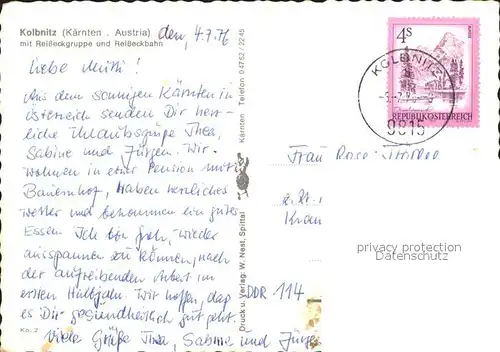 Kolbnitz (Kärnten . Austria)
mit Reißeckgruppe und Reißeckbahn
den, 4.7.76
Liebe Mutti!
Aus dem sonnigen Kärnten in
Österreich senden Dir herz-
liche Urlaubsgrüße Thea,
Sabine und Jürgen. Wir
wohnen in einer Pension mit
Bauernhof, haben herrliches
Wetter und bekommen ein gutes
Essen. Ich bin froh, wieder
ausspannen zu können, nach
der aufreibenden Arbeit im
ersten Halbjahr. Wir hoffen, daß
es Dir gesundheitlich gut geht.
Viele Grüße Thea, Sabine und Jürgen
Ko. 2
Kärnten Telefon 04752 / 2245
Druck u. Verlag: W. Nest, Spittal
4S
REPUBLIK ÖSTERREICH
KOLBNITZ
9815
Frau
DDR 114
privacy protection
Datenschutz